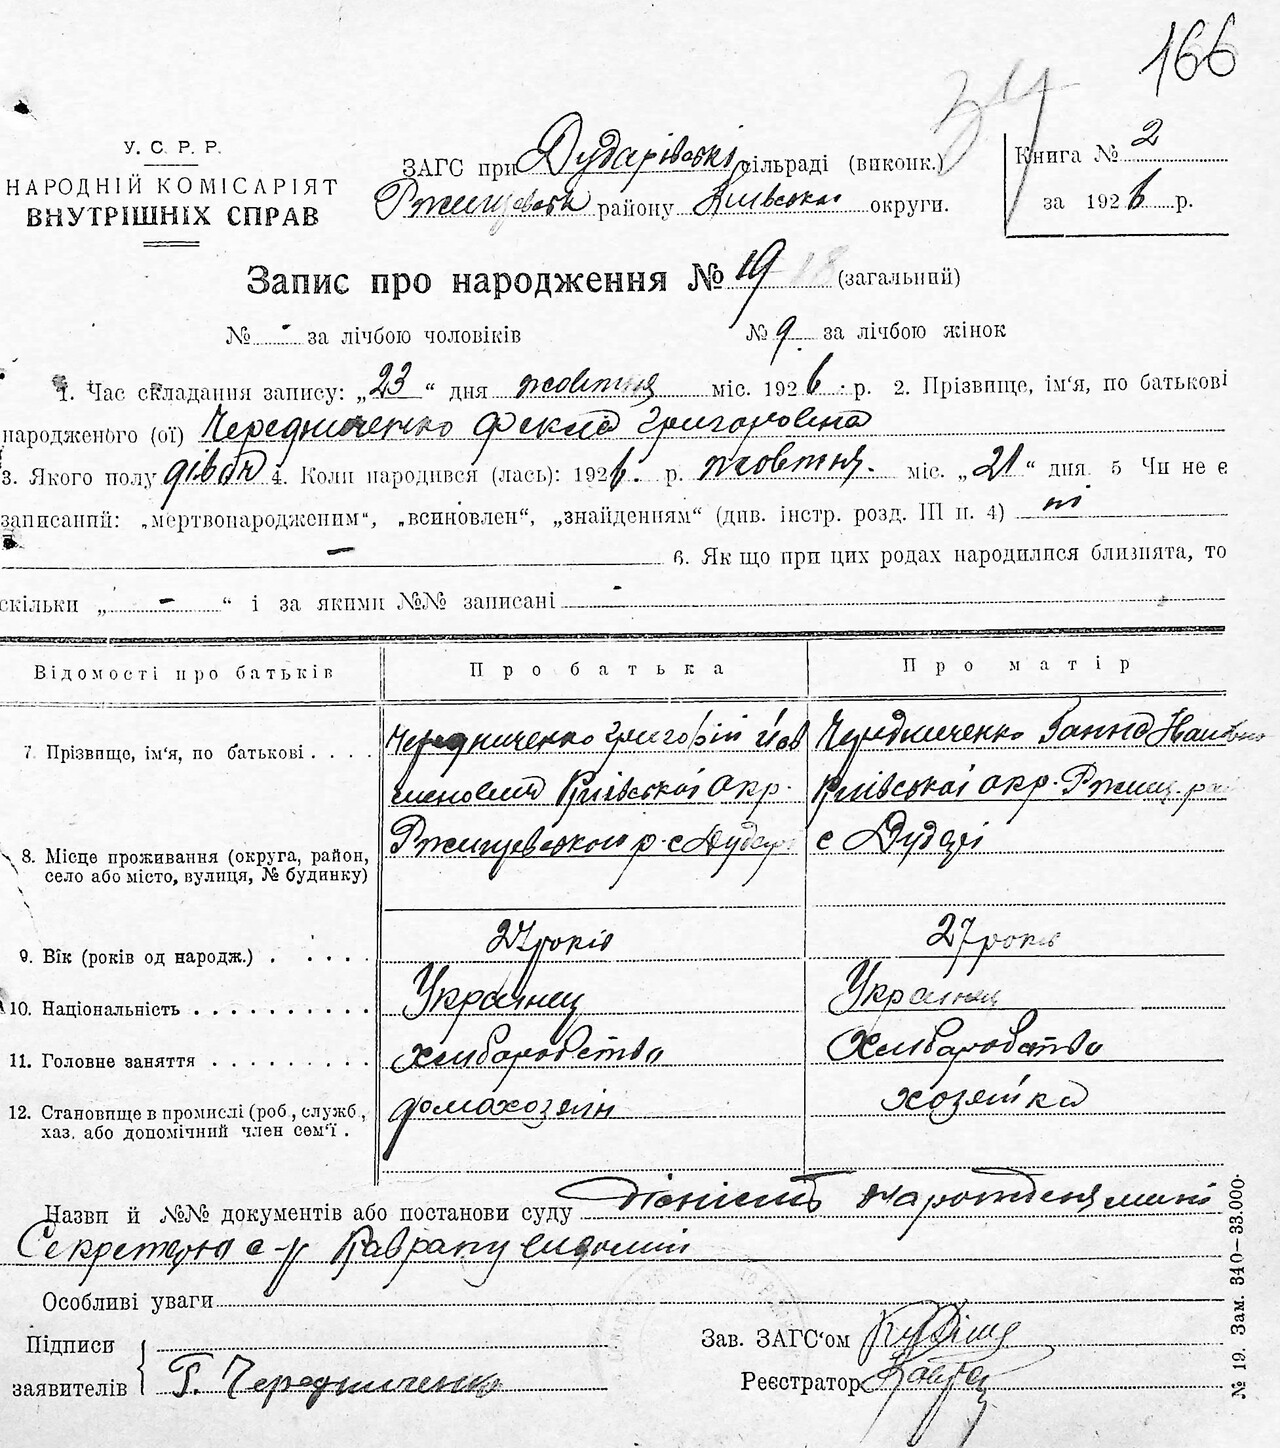 166
34
У. С. Р. Р.
НАРОДНІЙ КОМІСАРІЯТ
ВНУТРІШНІХ СПРАВ
ЗАГС при Дударівські сільраді (виконк.)
Ржищевськ району Київської округи.
Книга № 2
за 1926 р.
Запис про народження № 19 18 (загальний)
№ - за лічбою чоловіків № 9 за лічбою жінок
1. Час складання запису: „23“ дня жовтня міс. 1926 р. 2. Прізвище, ім'я, по батькові
народженого (ої) Чередниченко Фекла Григоровна
3. Якого полу дівоч 4. Коли народився (лась): 1926. р. жовтня. міс. „21“ дня. 5 Чи не є
записаний: „мертвонародженим“, „всиновлен“, „знайденням“ (див. інстр. розд. III п. 4) ні
– 6. Як що при цих родах народилися близнята, то
скільки „ - “ і за якими №№ записані -
Відомості про батьків Про батька Про матір
7. Прізвище, ім'я, по батькові . . . . Чередниченко Григорій Чередниченко Ганна
Київської Окр. Київської окр. Ржищ.
8. Місце проживання (округа, район, село або місто, вулиця, № будинку) Ржищевського р. с с Дударі
9. Вік (років од народж.) . . . . . 27 років 27 років
10. Національність . . . . . . . . . . Українец Українец
11. Головне заняття . . . . . . . . Хлиборобство Хлиборобство
12. Становище в промислі (роб, служб, хаз. або допомічний член сем'ї . домахозяін хозяйка
Назви й №№ документів або постанови суду дісність народження мині
Секретарю с-р
Особливі уваги
Підписи
заявителів Г. Чередниченко
Зав. ЗАГС'ом
Реєстратор
№ 19. Зам. 340—33.000.